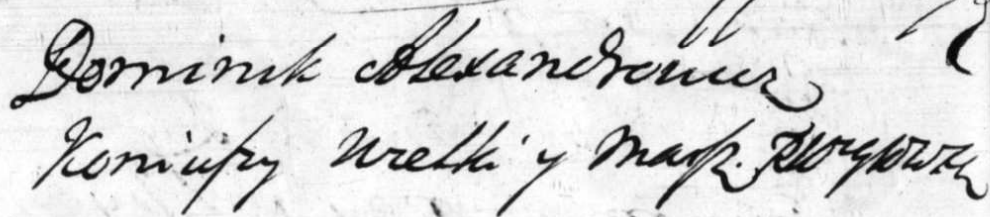 Dominik Alexandrowicz
Koniuszy Wielki y Marsz.